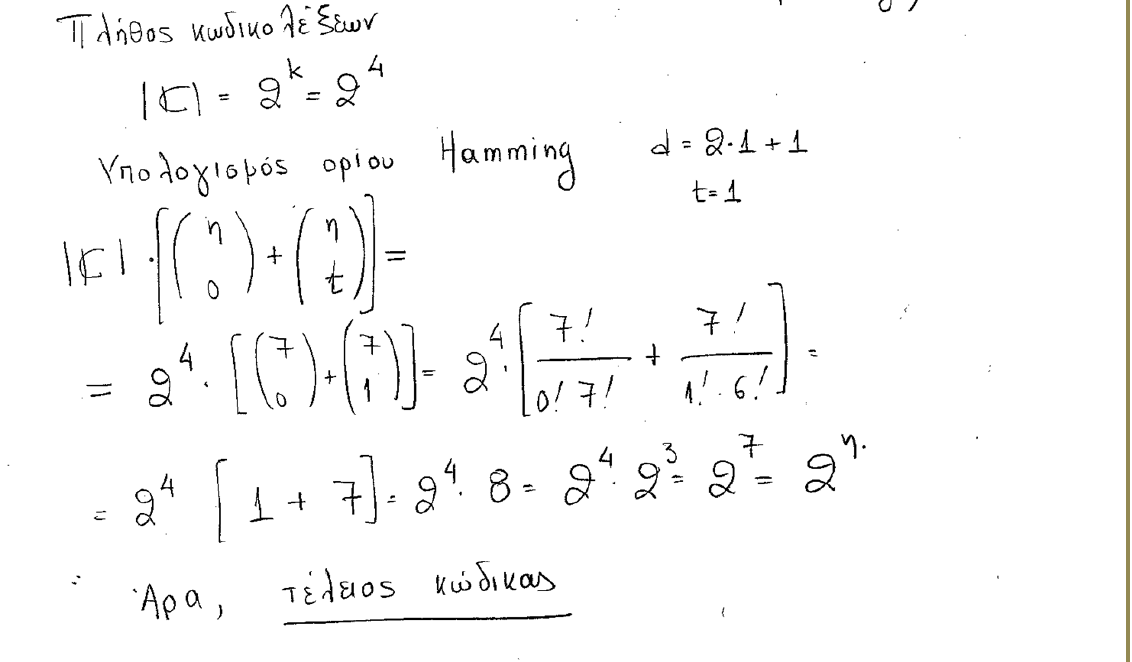 Πλήθος κωδικολέξεων
|C| = 2^k = 2^4
Υπολογισμός ορίου Hamming d = 2·1 + 1
t = 1
|C| · [(n 0) + (n t)] =
= 2^4 · [(7 0) + (7 1)] = 2^4 · [7!/(0! 7!) + 7!/(1! · 6!)] =
= 2^4 [1 + 7] = 2^4 · 8 = 2^4 · 2^3 = 2^7 = 2^n.
Άρα, τέλειος κώδικας